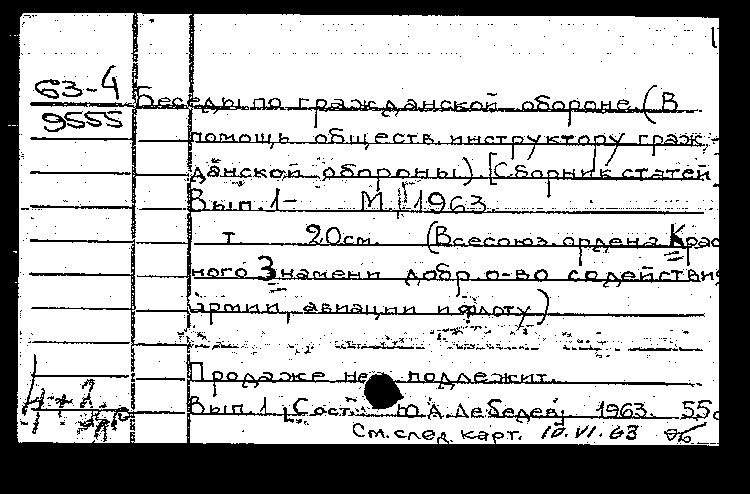 63-4
9555
Беседы по гражданской обороне. (В
помощь обществ. инструктору граж-
данской обороны). [Сборник статей.
Вып. 1- М., 1963.
т. 20см. (Всесоюз. ордена Крас
ного Знамени добр. о-во содействия
армии, авиации и флоту)
Продаже не подлежит.
Вып. 1. [Сост. Ю.А. Лебедев]. 1963. 55с
См. след карт. 10.VI.63